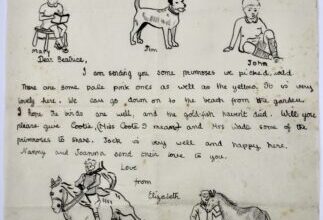 Mary
Tim
John
Dear Beatrice,
I am sending you some primroses we picked wild.
There are some pale pink ones as well as the yellow. It is very
lovely here. We can go down on to the beach from the garden.
I hope the birds are well, and the goldfish haven't died. Will you
please give Cootie (Miss Coote I mean) and Mrs Wade some of the
primroses to share. Jock is very well and happy here.
Nanny and Joanna send their love to you.
Love
from
Elizabeth